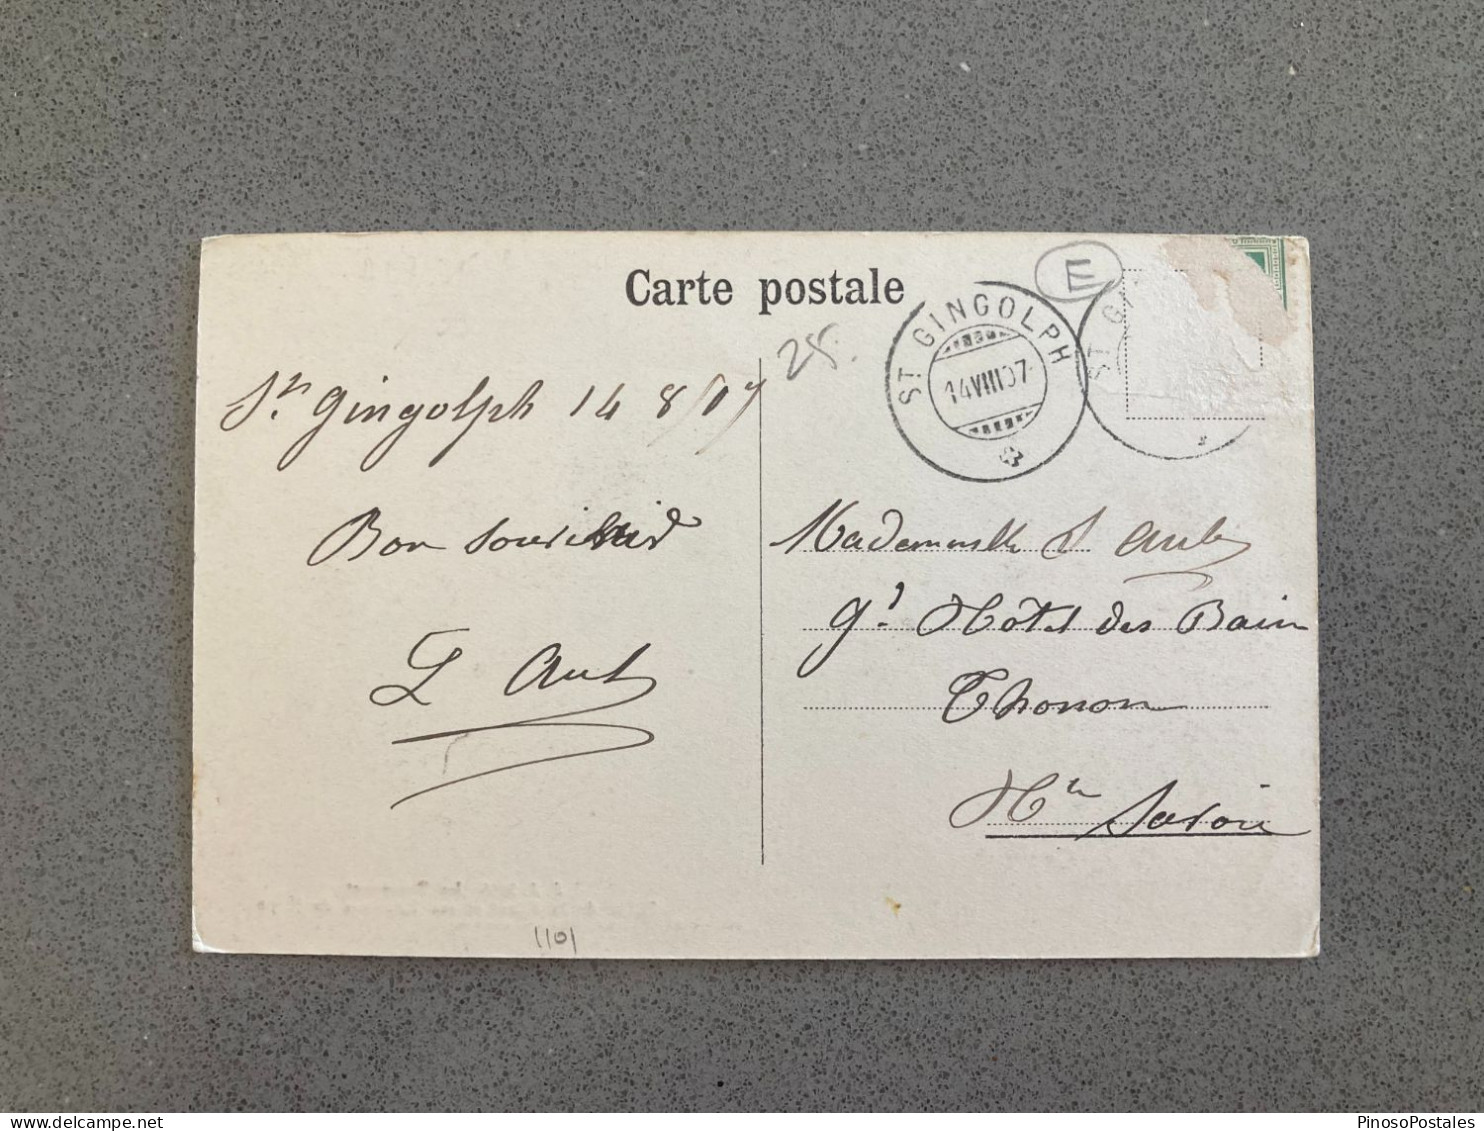 Carte postale
E
ST. GINGOLPH
14 VIII 07
ST. GI
28.
St. Gingolph 14 8/07
Bon souvenir
Mademoiselle
gd. Hôtel des Bain
Thonon
Hte Savoie
1101
delcampe.net
PinosoPostales